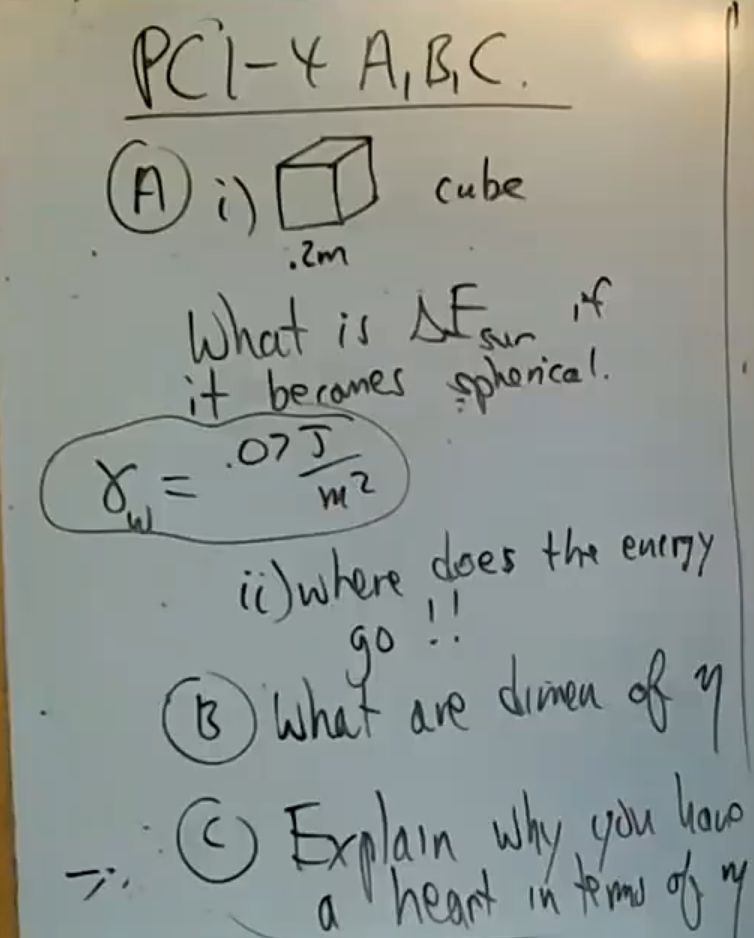 PC1-4 A,B,C.
A i) cube
.2m
What is ΔE sur if
it becomes spherical.
γw = .07 J/m²
ii) where does the energy
go !!
B What are dimen of η
C Explain why you have
a heart in terms of η